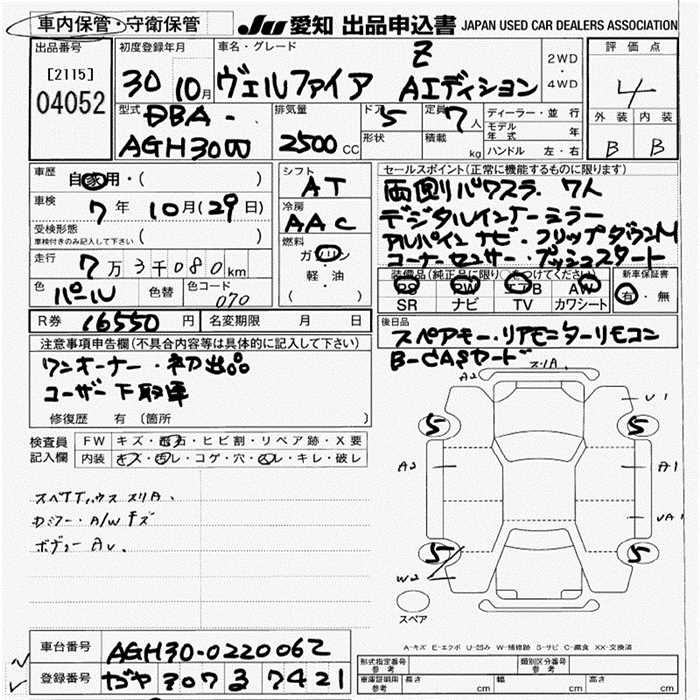 車内保管・守衛保管 JU 愛知 出品申込書 JAPAN USED CAR DEALERS ASSOCIATION
出品番号 [2115] 04052
初度登録年月 30 10月
車名・グレード ヴェルファイア Z Aエディション
2WD・4WD
評価点 4
外装 B 内装 B
型式 DBA- AGH30W
排気量 2500 CC
ドア 5
形状
定員 7人
積載 kg
ディーラー・並行
モデル年式 年
ハンドル 左・右
車歴 自家用・( )
車検 7年10月(29日)
受検形態 車検付きのみ記入して下さい ( )
走行 7万3千080km
色 パール 色替 色コード 070
シフト AT
冷房 AAC
燃料 ガソリン・軽・油 ( )
セールスポイント(正常に機能するものに限ります)
両側パワスラ. 7人
デジタルインナーミラー
アルパインナビ・フリップダウンM
コーナーセンサー・プッシュスタート
装備品(純正品に限り○をつけてください)
PS PW エアB AW
SR ナビ TV カワシート
新車保証書 有・無
R券 16550円 名変期限 月 日
後日品 スペアキー・リアモニターリモコン
B-CASカード
注意事項申告欄(不具合内容等は具体的に記入して下さい)
ワンオーナー・初出品
ユーザー下取車
修復歴 有 〔箇所 〕
検査員記入欄
FW キズ・飛石・ヒビ割・リペア跡・X要
内装 キズ・汚レ・コゲ・穴・凹レ・キレ・破レ
スリA
A2
U1
5 5
A2 A1
UA1
5 5
W2
スペア
A-キズ E-エクボ U-凹み W-補修跡 S-サビ C-腐食 XX-交換済
車台番号 AGH30-0220062
登録番号 307 7421
型式指定番号 参考 類別区分番号 参考
車庫証明用 参考 長さ cm 幅 cm 高さ cm